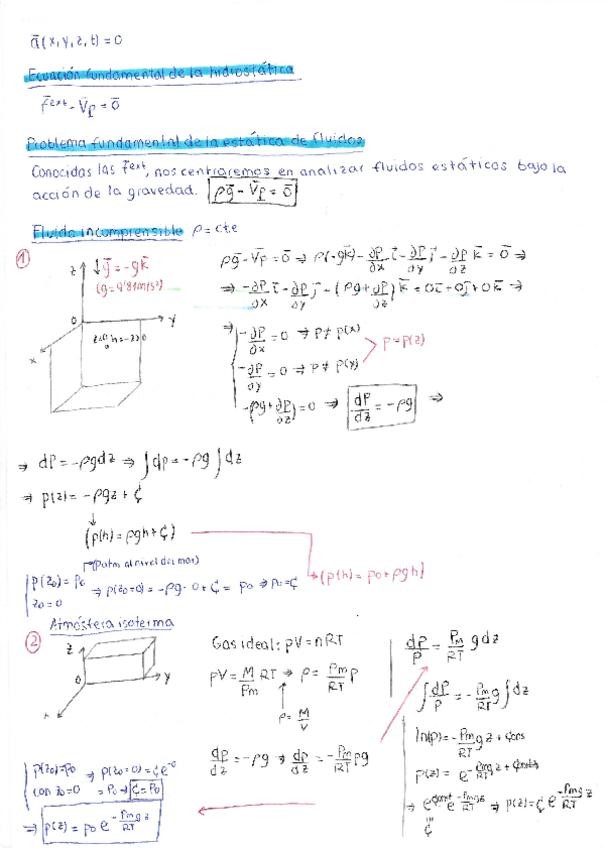 ā(x,y,z,t)=0
Ecuación fundamental de la hidrostática
F̄ext - ∇̄p = 0̄
Problema fundamental de la estática de fluidos
Conocidas las F̄ext, nos centraremos en analizar fluidos estáticos bajo la
acción de la gravedad. ρḡ - ∇̄p = 0̄
Fluido incomprensible ρ=cte
① z ↓ḡ = -gk̄
(g=9'81m/s²)
0 y
x
z<0 h=-z>0
ρḡ - ∇̄p = 0̄ ⇒ ρ(-gk̄) - ∂P/∂x ī - ∂P/∂y j̄ - ∂P/∂z k̄ = 0̄ ⇒
⇒ -∂P/∂x ī - ∂P/∂y j̄ - (ρg + ∂P/∂z) k̄ = 0ī + 0j̄ + 0k̄ ⇒
⇒ -∂P/∂x = 0 ⇒ P ≠ p(x)
-∂P/∂y = 0 ⇒ P ≠ p(y)
p = p(z)
-(ρg + ∂P/∂z) = 0 ⇒ dP/dz = -ρg ⇒
⇒ dP = -ρgdz ⇒ ∫dp = -ρg∫dz
⇒ p(z) = -ρgz + C
↓
(p(h) = ρgh + C)
(Patm al nivel del mar)
p(z0) = p0
z0 = 0
⇒ p(z0=0) = -ρg·0 + C = p0 ⇒ p0 = C
(p(h) = p0 + ρgh)
② Atmósfera isoterma
z
0 y
x
Gas ideal: pV = nRT
pV = M/Pm RT ⇒ ρ = Pm/RT p
ρ = M/V
dp/dz = -ρg ⇒ dp/dz = -Pm/RT pg
dP/P = Pm/RT gdz
∫dP/P = -Pm/RT g∫dz
ln(p) = -Pm/RT gz + cons
p(z) = e^(-Pm/RT gz + const)
⇒ e^const e^(-Pm/RT gz) ⇒ p(z) = C e^(-Pm/RT gz)
C
p(z0)=p0
con z0=0
⇒ p(z0=0) = C e^-0
= p0 ⇒ C = p0
⇒ p(z) = p0 e^(-Pm/RT g z)